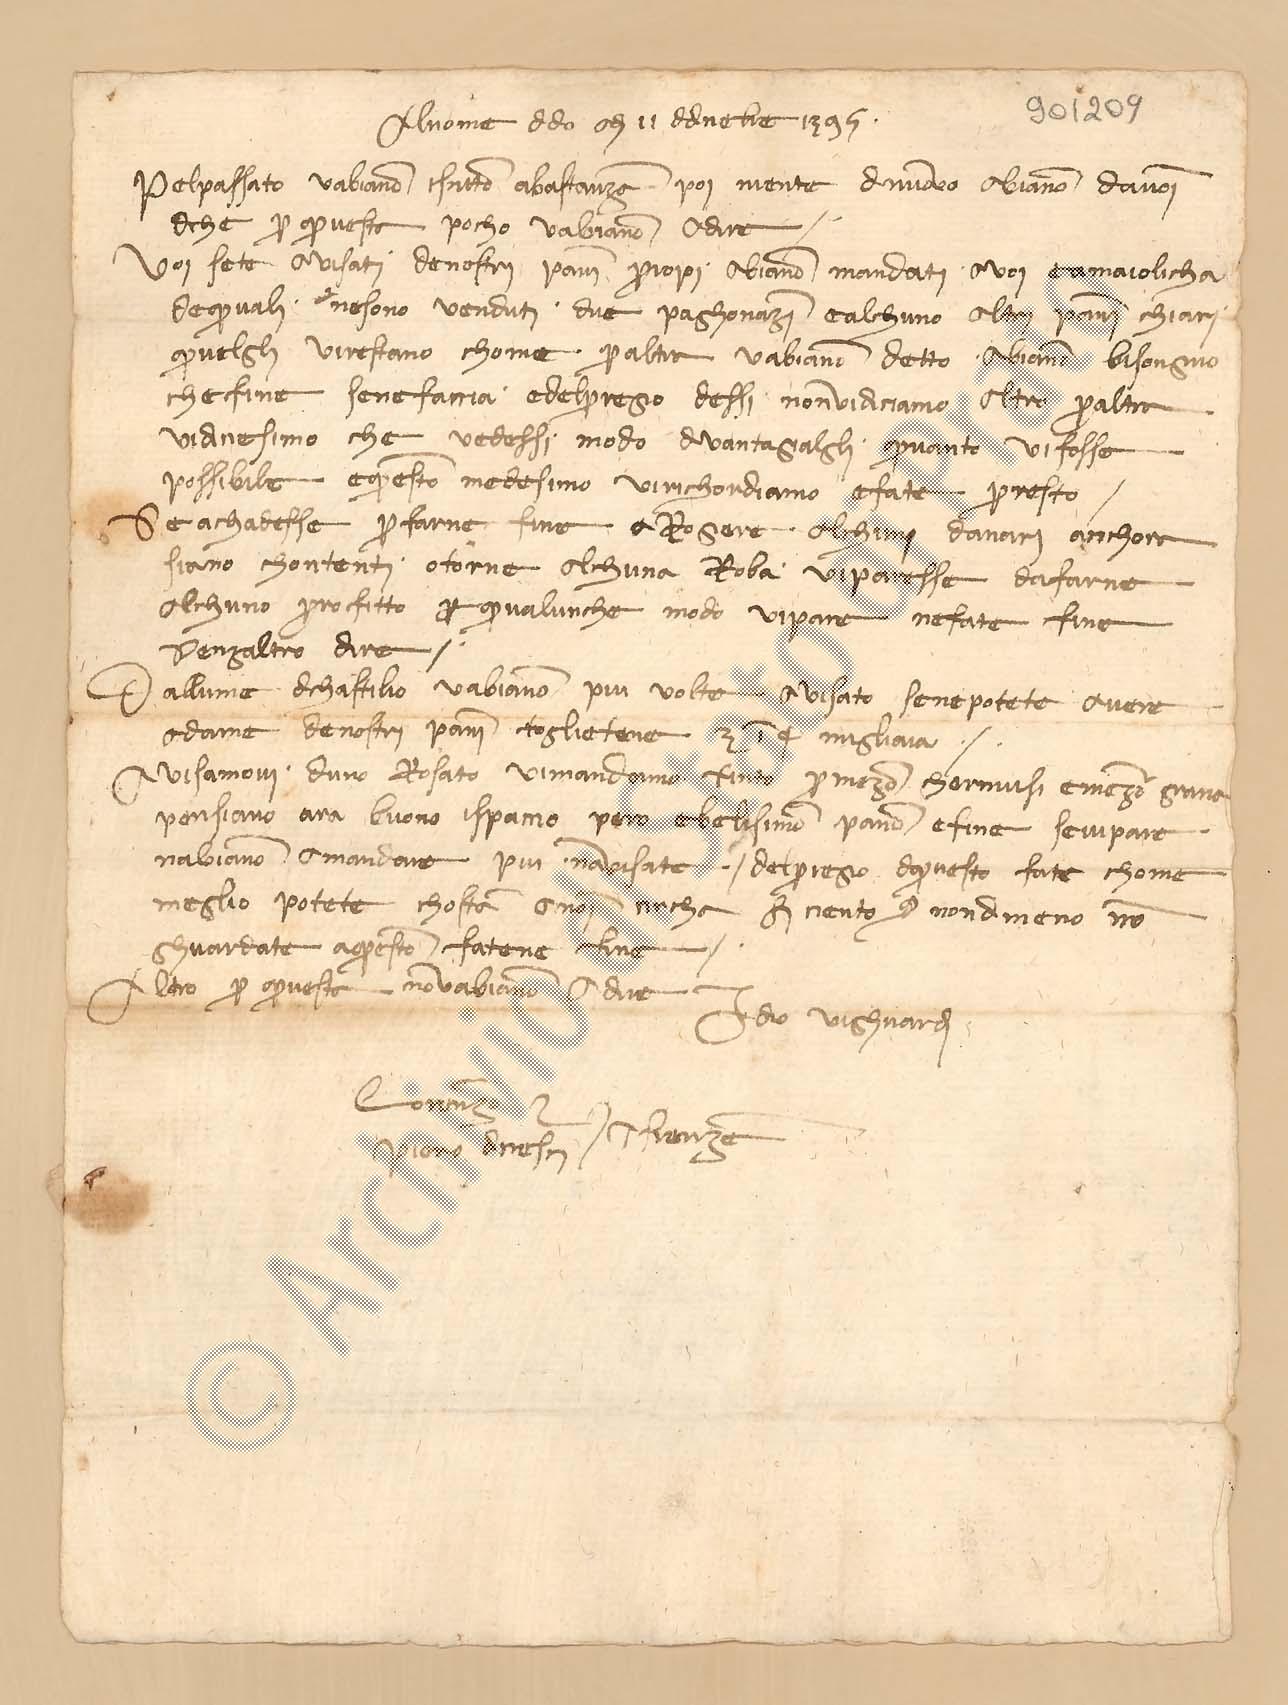 901209
Al nome d dio a dì 11 d dicienbre 1395.
Pel passato v'abiano iscritto a bastanza poi niente di nuovo abiano da voi
di che per questa pocho v'abiano a dire
Voi sete avisati de nostri panni propi abiano mandati a voi e a Maiolicha
de quali ne sono venduti due paghonazi e alchuno altri panni chiari
quelgli vi restano chome per altra v'abiano detto abiano bisongnio
che fine se ne faccia e del pregio d'essi non vi diciamo altro per altra
vi dicesimo che vedessi modo d'vantagialgli quanto vi fosse
possibile e questo medesimo vi richordiamo e fate presto
Se achadesse per farne fine a Rogere alchuni danari anchora
siano chontenti o torne alchuna Roba vi paresse da farne
alchuno profitto per qualunche modo vi pare ne fate fine
senz'altro dire
D'allume d chastilio v'abiano piu volte avisato se ne potete avere
a dare de nostri panni toglietene migliaia
Avisamovi d'uno Rosato vi mandamo tinto per mezo chermusi e mezo grana
pensiano ara buono ispaccio pero e belisimo pano e fine se vi pare
n'abiano a mandare piu n'avisate del pregio d questo fate chome
meglio potete chosta a noi circha ciento nondimeno no
ghuardate a questo fatene fine
Altro per questa non v'abiano a dire
Idio vi ghuardi
Lorenzo
Piero d cresci Firenze
© Archivio di Stato di Prato